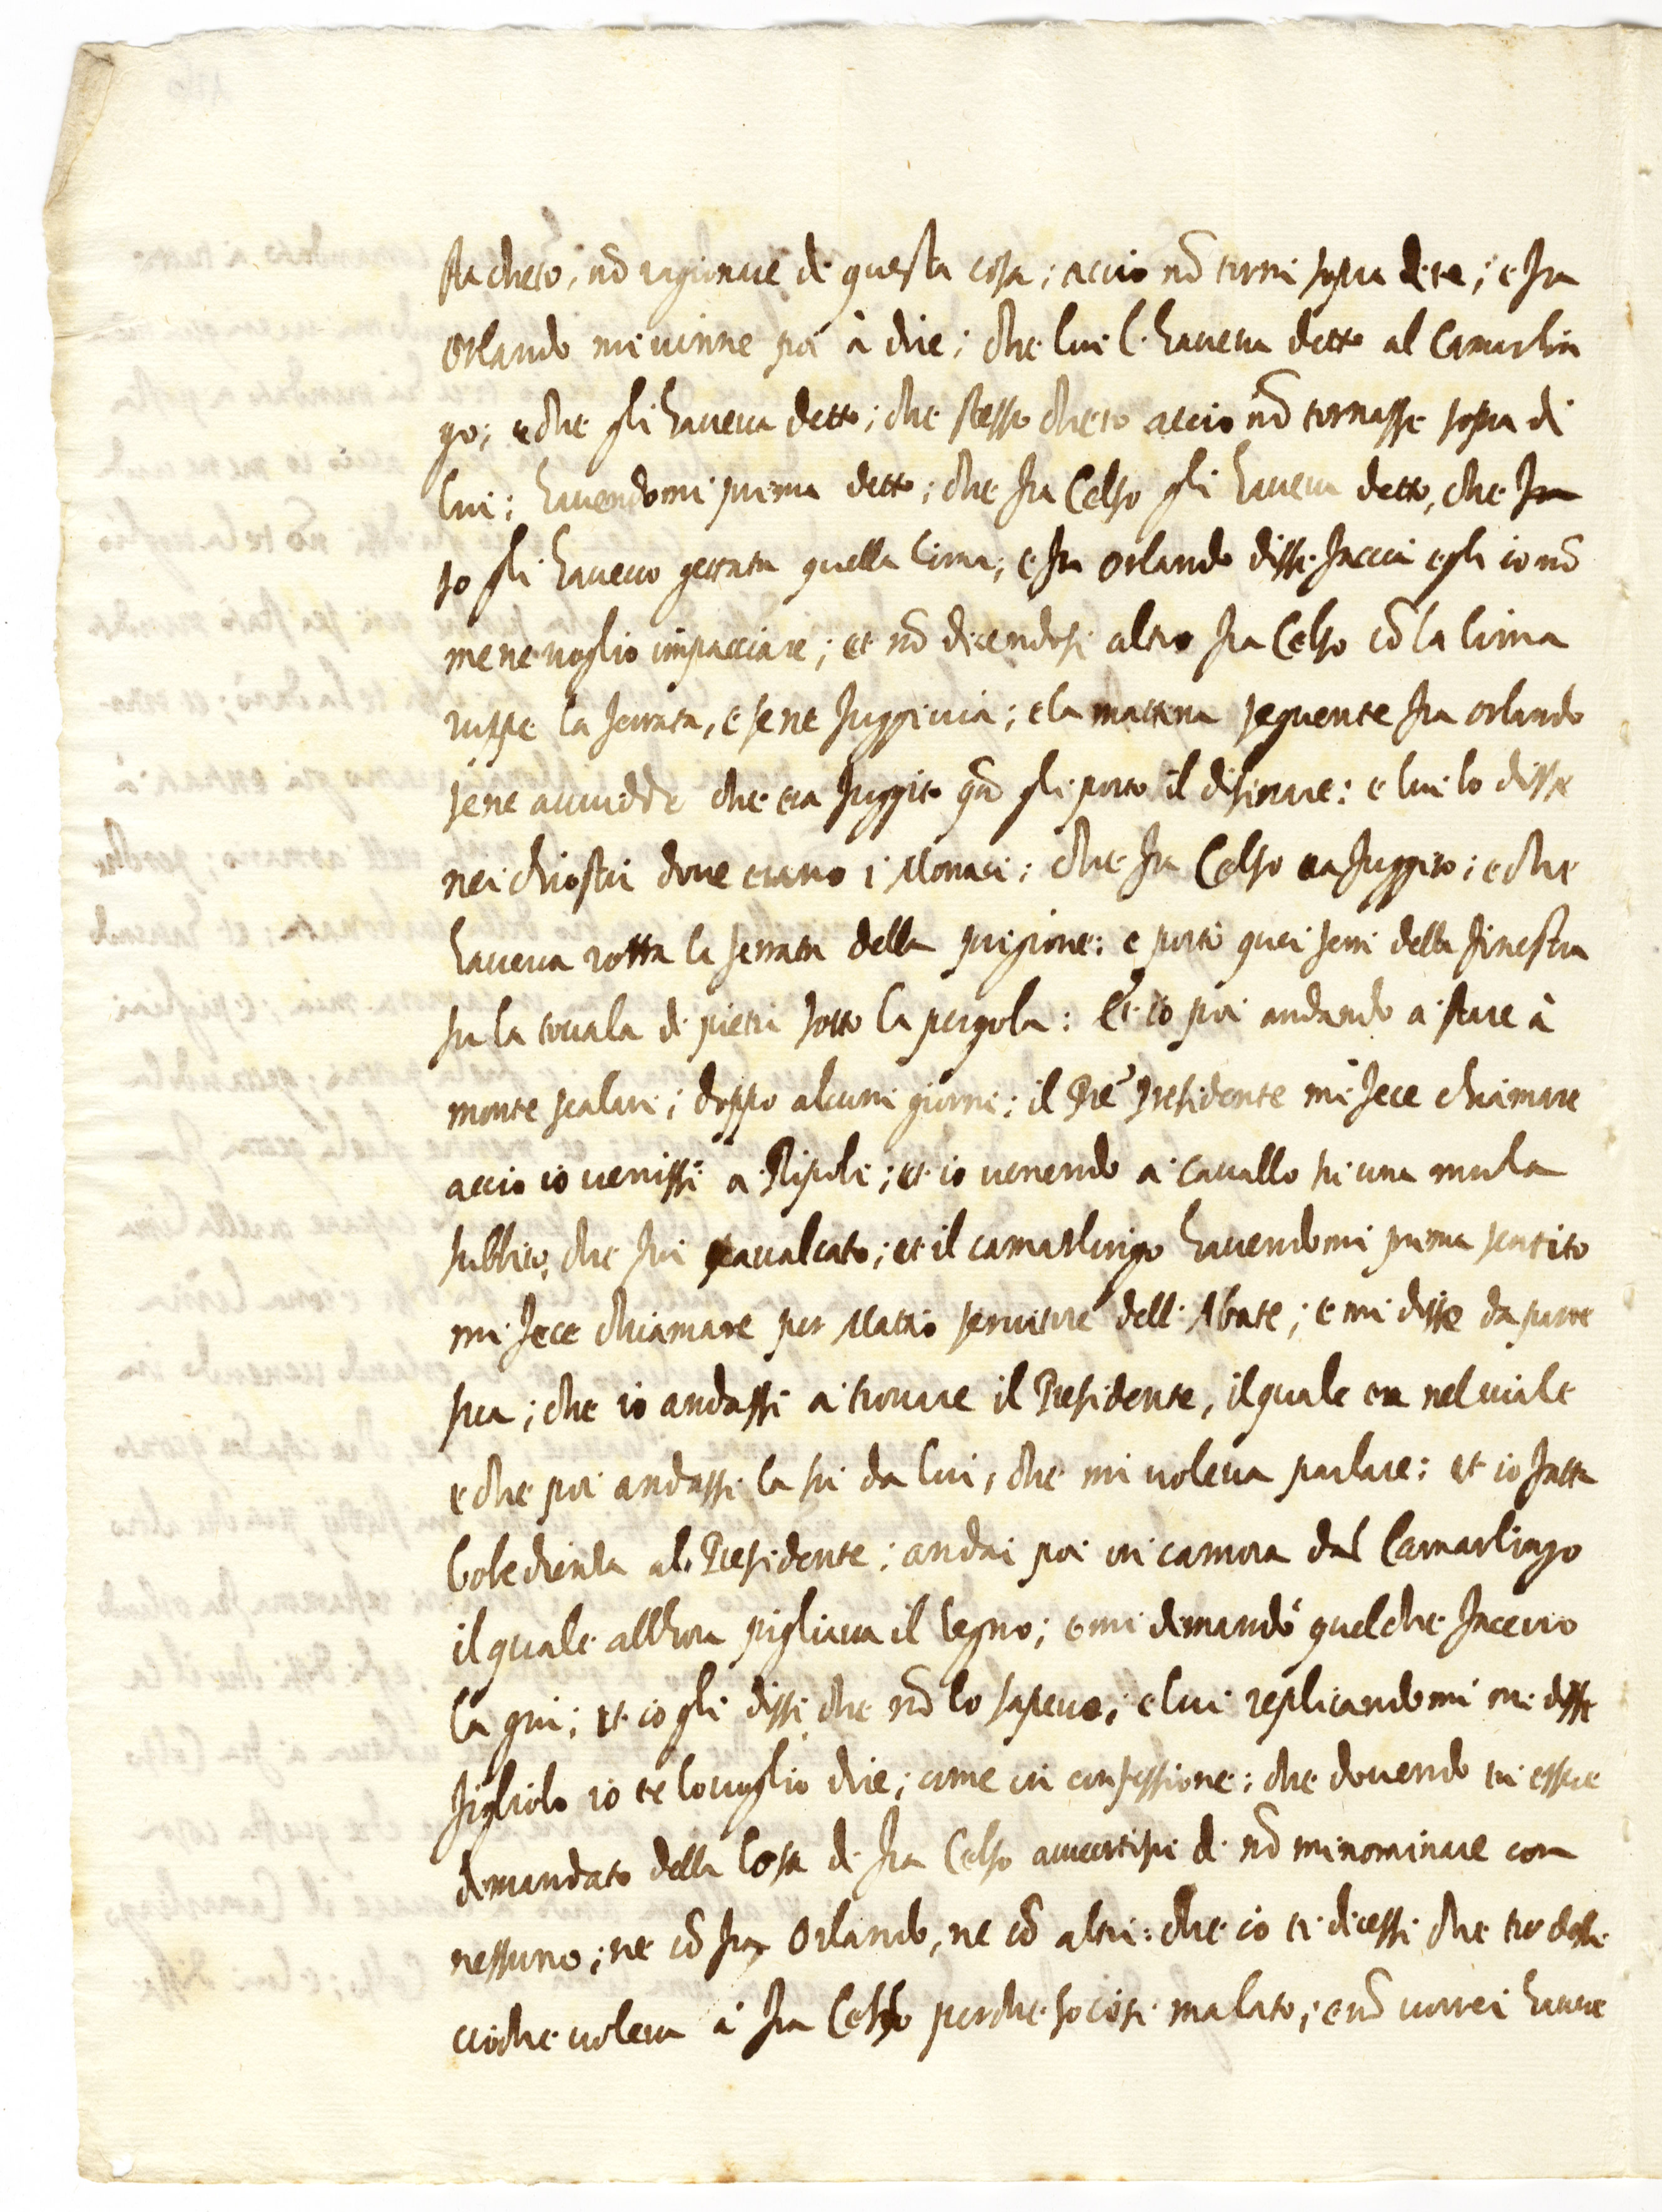 sta cheto, nõ ragionare di questa cosa; accio nõ torni sopra di te; e fra
Orlando mi uinne poi à dire; che lui l'haueua detto al Camarlin
go; e che gli haueua detto; che stesse cheto accio nõ tornasse sopra di
lui; hauendomi prima detto; che fra Celso gli haueua detto, che
io gli haueuo gettata quella lima; e fra Orlando disse faccia egli io nõ
me ne uoglio impacciare; et nõ dicendosi altro fra Celso cõ la lima
ruppe la serrata, e se ne fuggi uia; e la mattina seguente fra orlando
se ne auuidde che era fuggito qñ gli porto il disinare: e lui lo disse
nei chiostri doue erano i Monaci; che fra Celso era fuggito; e che
haueua rotta la serrata della prigione: e posti quei ferri della finestra
su la touala di pietra sotto la pergola: Et io poi andando a stare à
monte scalari; doppo alcuni giorni; il Pre Presidente mi fece chiamare
accio io uenissi a Ripoli; et io uenendo a cauallo su una mula
subbito, che fui scaualcato; et il camarlingo hauendomi prima sentito
mi fece chiamare per Matio seruitore dell' Abate; e mi disse da parte
sua; che io andassi a trouare il Presidente, il quale era nel uiale
e che poi andassi la su da lui, che mi uoleua parlare; et io fatta
l'obedienza al Presidente; andai poi in camera dal Camarlingo
il quale allhora pigliaua il legno; e mi dimandò quel che faceuo
la qui; et io gli dissi che nõ lo sapeuo; e lui replicandomi mi disse
figliolo io te lo uoglio dire; come in confessione; che douendo tu essere
dimandato della cosa di fra Celso auuertisci di nõ mi nominare con
nessuno; ne cõ fra Orlando, ne cõ altri: che io ti dicessi che tu dessi
cio che uoleua à fra Celso perche so cosi malato; e nõ uorrei hauere